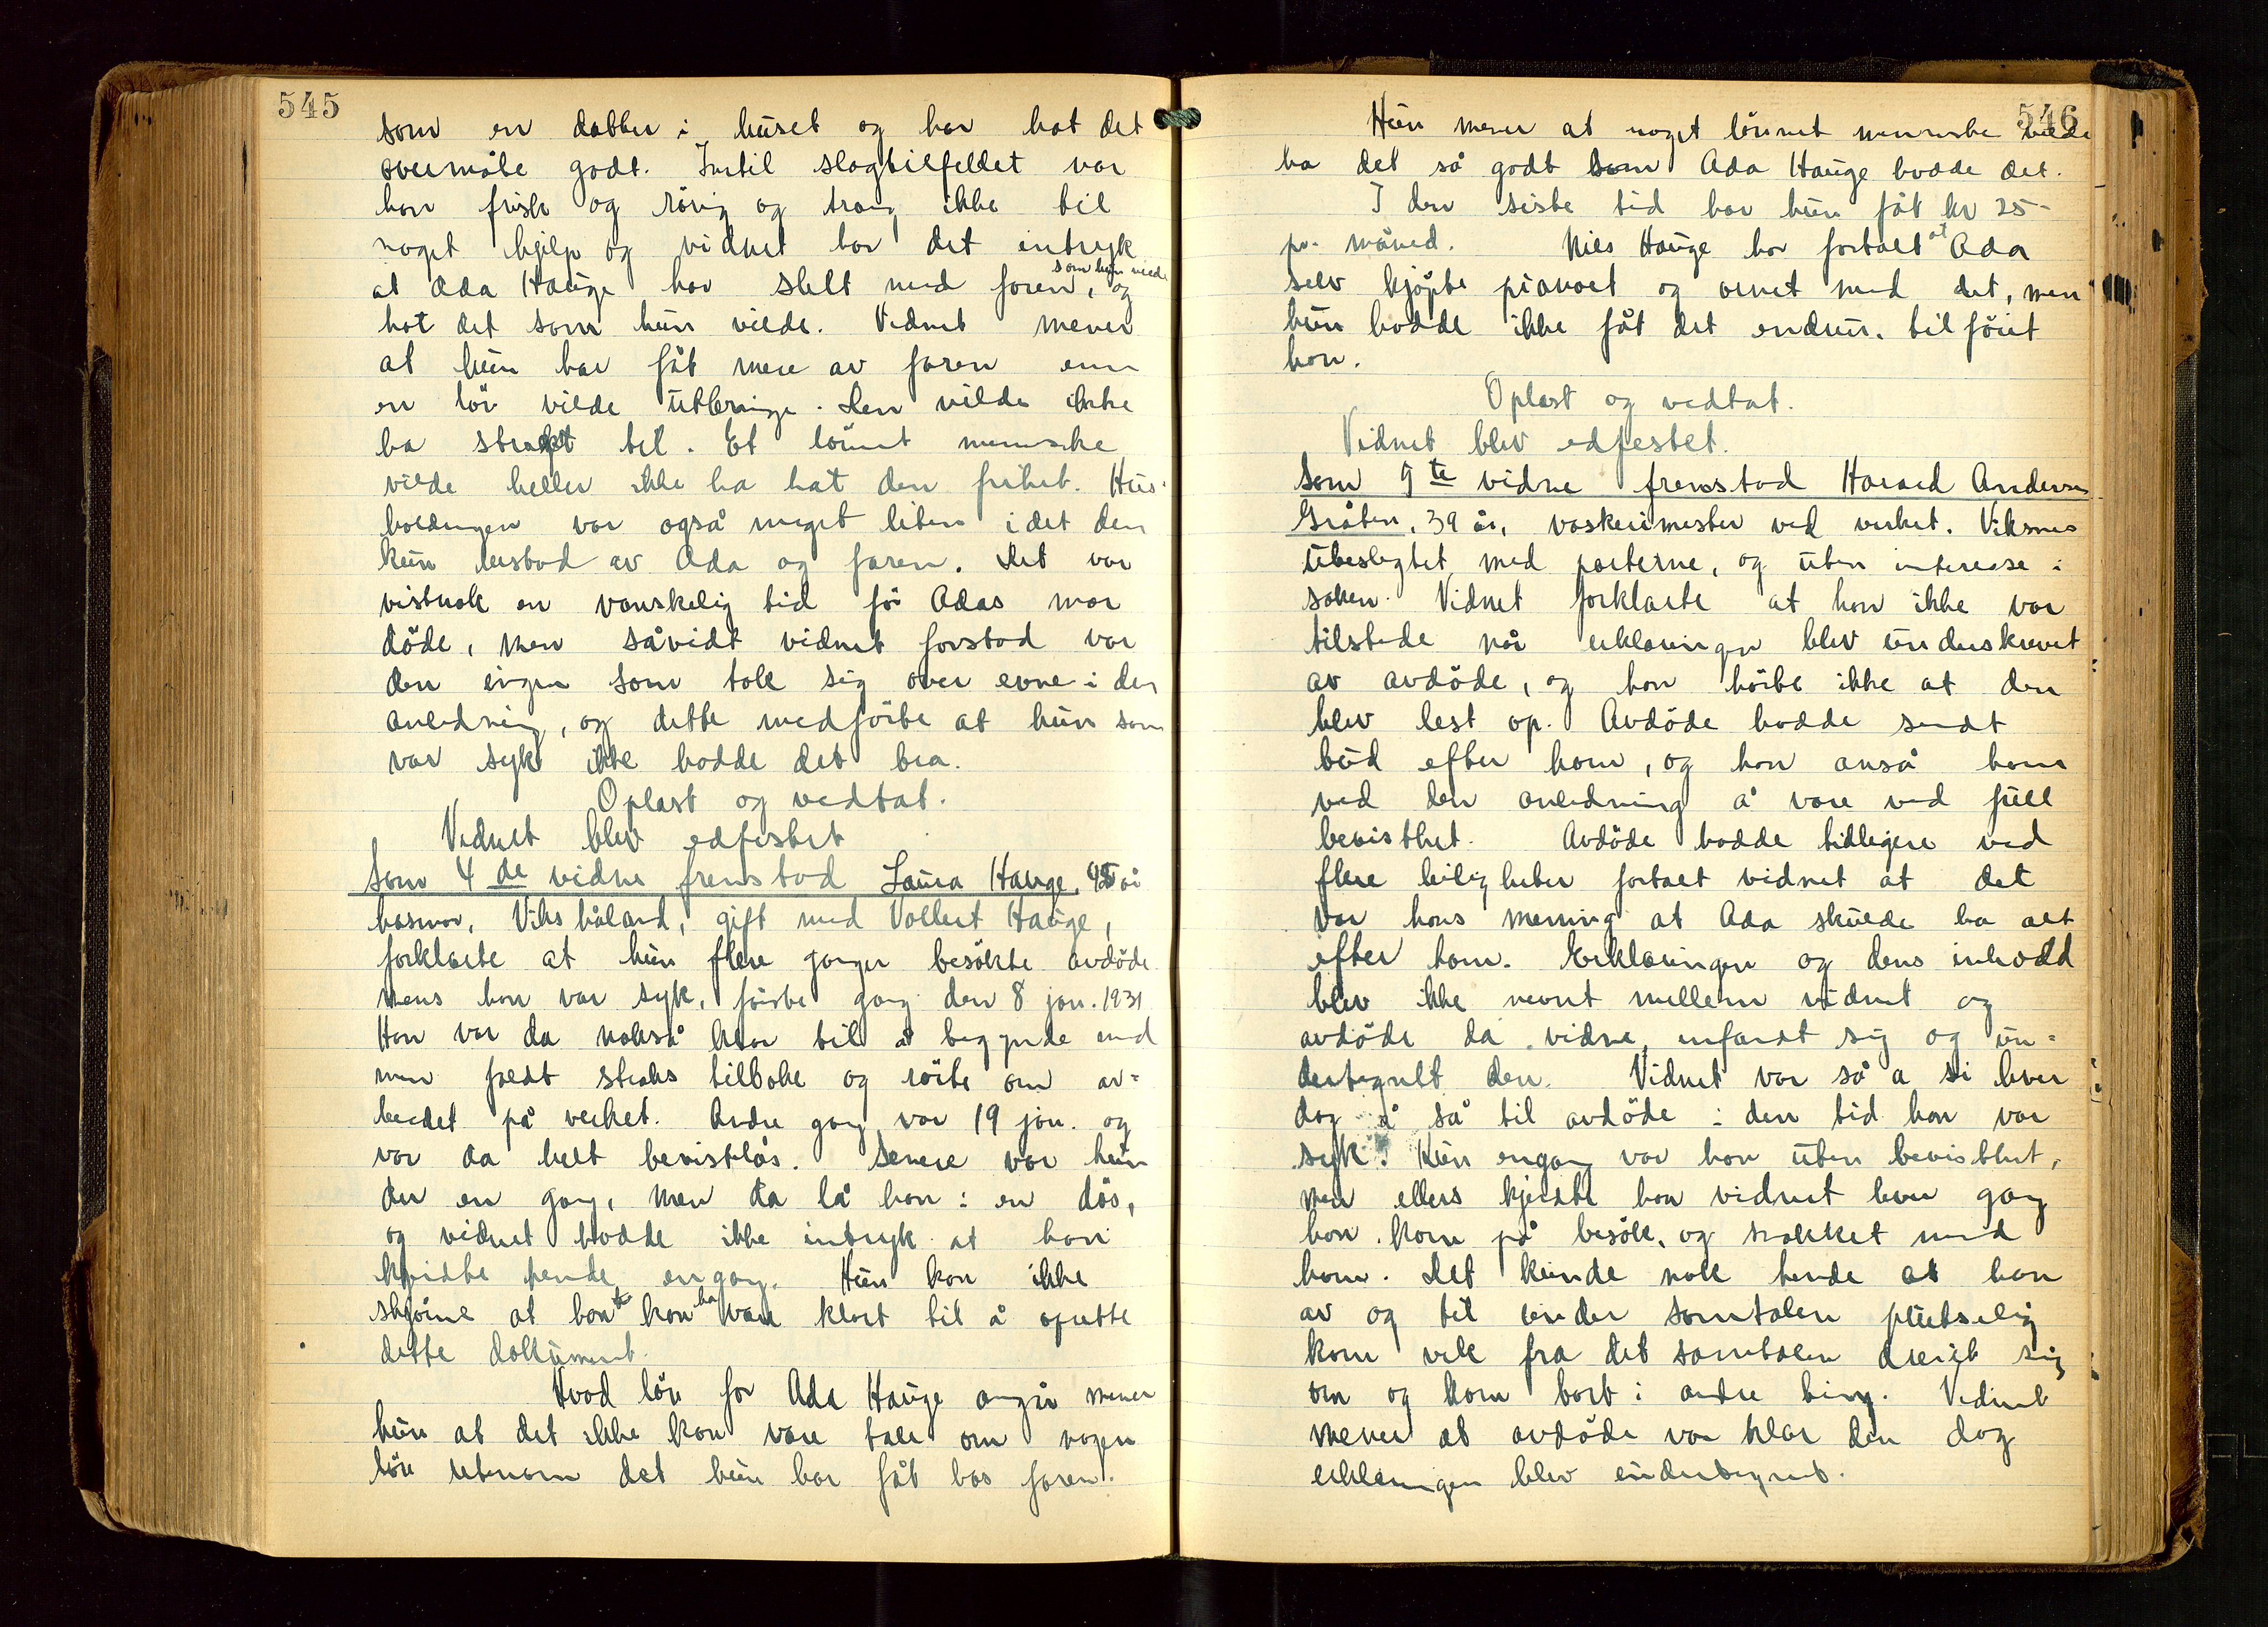 545
som en datter i huset og har hat det
overmåte godt. Inntil slagtilfellet var
han frisk og rörig og trang ikke til
noget hjelp og vidnet har det intryk
at Ada Hauge har stelt med faren, som hun vilde og
hat det som hun vilde. Vidnet mener
at hun har fåt mere av faren enn
en lön vilde utbringe. Den vilde ikke
ha strakt til. Et lönnet menneske
vilde heller ikke ha hat den frihet. Hus-
holdningen var også meget liten idet den
kun bestod av Ada og faren. Det var
vistnok en vanskelig tid för Adas mor
döde, men såvidt vidnet forstod var
der ingen som tok sig over evne i den
anledning, og dette medförte at hun som
var syk ikke hadde det bra.
Oplæst og vedtat.
Vidnet blev edfestet
Som 4 de vidne fremstod Laura Hauge, år
husmor, Viksháland, gift med Vollert Hauge,
forklarte at hun flere ganger besökte avdöde
mens han var syk, förste gang den 8 jan. 1931
Han var da nokså klar til å begynde med
men faldt straks tilbake og rörte om ar-
beidet på verket. Andre gang var 19 jan. og
var da helt bevistlös. Senere var hun
der en gang, men da lå han i en dös,
og vidnet hadde ikke intryk at han
kjendte hende engang. Hun kan ikke
skjönne at han kan ha være klart til å oprette
dette dokument.
Hvad lön for Ada Hauge angår mener
hun at det ikke kan være tale om nogen
lön utenom det hun har fåt hos faren.
546
Hun mener at noget lönnet menneske vilde
ha det så godt som Ada Hauge hadde det.
I den siste tid har hun fåt kr 25-
pr. måned. Nils Hauge har fortalt at Ada
selv kjöpte pianoet og ornet med det, men
hun hadde ikke fåt det endnu. tilföiet
hon.
Oplæst og vedtat.
Vidnet blev edfestet.
Som 9 te vidne fremstod Harald Andersen
Gråten, 39 år, vaskerimester ved verket. Viksnes
ubeslegtet med parterne, og uten interesse i
saken. Vidnet forklarte at han ikke var
tilstede når erklæringen blev underskrevet
av avdöde, og han hörte ikke at den
blev lest op. Avdöde hadde sendt
bud efter ham, og han anså ham
ved den anledning å være ved full
bevisthet. Avdöde hadde tidligere ved
flere leiligheter fortalt vidnet at det
var hans mening at Ada skulde ha alt
efter ham. Erklæringen og dens inhold
blev ikke nevnt mellem vidnet og
avdöde da vidne infandt sig og un-
dertegnet den. Vidnet var så a si hver
dag å så til avdöde i den tid han var
syk. Kun engang var han uten bevisthet,
men ellers kjendte han vidnet hver gang
han kom på besök, og snakket med
ham. Det kunde nok hende at han
av og til under samtalen plutselig
kom vek fra det samtalen dreiet sig
om og kom bort i andre ting. Vidnet
mener at avdöde var klar den dag
erklæringen blev undertegnet.